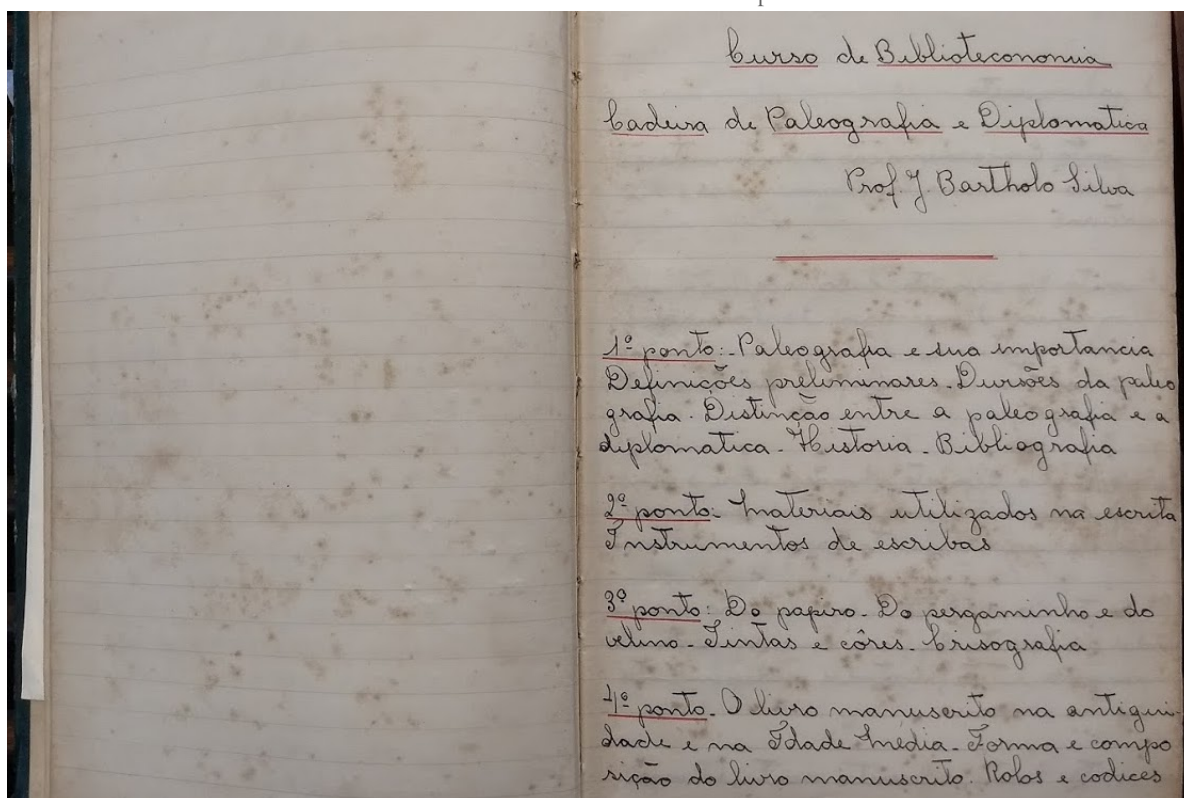 Curso de Biblioteconomia
Cadeira de Paleografia e Diplomatica
Prof. J. Bartholo Silva
1º ponto:- Paleografia e sua importancia
Definições preliminares. Divisões da paleo
grafia. Distincção entre a paleografia e a
diplomatica. Historia. Bibliografia
2º ponto: Materiais utilizados na escrita
Instrumentos de escribas
3º ponto: Do papiro. Do pergaminho e do
velino. Tintas e côres. Crisografia
4º ponto. O livro manuscrito na antigui-
dade e na Idade Média. Forma e compo
sição do livro manuscrito. Rolos e codices